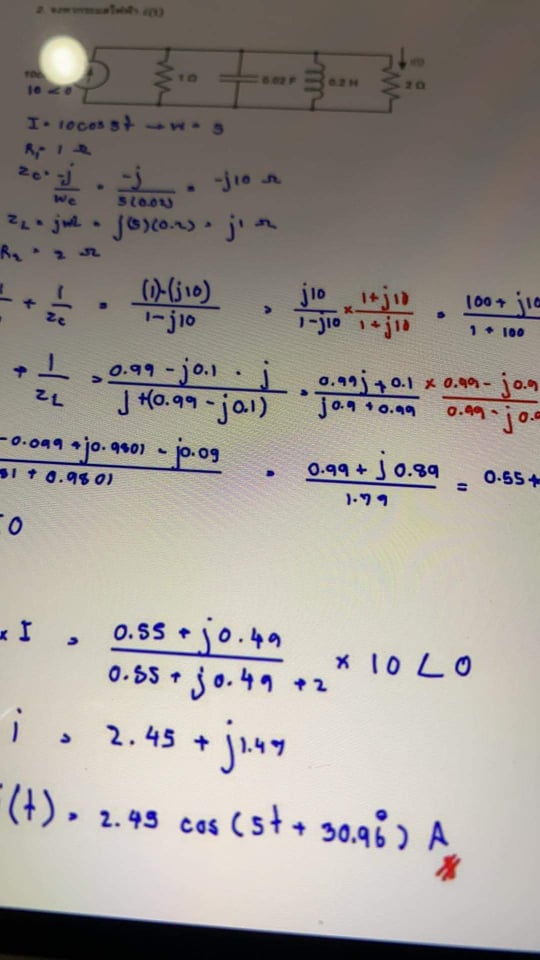 2. จงหากระแสไฟฟ้า i(t)
i(t)
1 Ω 0.02 F 0.2 H 2 Ω
10 < 0
I = 10cos 5t → w = 5
R₁ = 1 Ω
Zc = -j/wc = -j/5(0.02) = -j10 Ω
ZL = jwL = j(5)(0.2) = j1 Ω
R₂ = 2 Ω
+ 1/Zc = (1)-(j10)/1-j10 = j10/1-j10 × 1+j10/1+j10 = 100+j10/1+100
+ 1/ZL = 0.99-j0.1 · j/j+(0.99-j0.1) = 0.99j+0.1/j0.9+0.99 × 0.99-j0.9/0.99-j0.9
-0.099+j0.9801-j0.09/81+0.9801 = 0.99+j0.89/1.79 = 0.55+
0
× I = 0.55+j0.49/0.55+j0.49+2 × 10∠0
i = 2.45+j1.47
(t) = 2.45 cos (5t + 30.96°) A